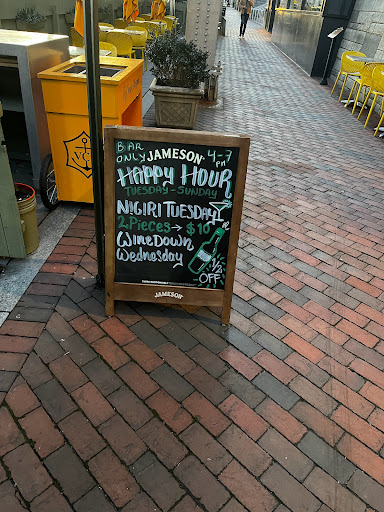 BAR ONLY JAMESON 4-7 PM
HAPPY HOUR
TUESDAY - SUNDAY
NIGIRI TUESDAY
2 PIECES → $10
WINE DOWN
WEDNESDAY
1/2 OFF
JAMESON
VC